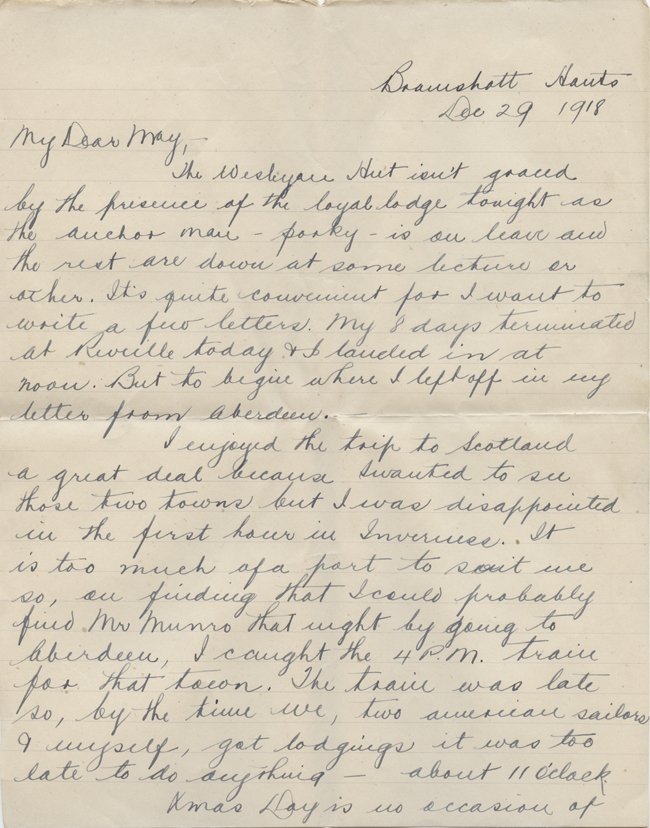 Bramshott Hants
Dec 29 1918
My Dear May,—
The Wesleyan Hut isn't graced
by the presence of the loyal lodge tonight as
the anchor man - porky - is on leave and
the rest are down at some lecture or
other. It's quite convenient for I want to
write a few letters. My 8 days terminated
at Reveille today & I landed in at
noon. But to begin where I left off in my
letter from Aberdeen. —
I enjoyed the trip to Scotland
a great deal because I wanted to see
those two towns but I was disappointed
in the first hour in Inverness. It
is too much of a port to suit me
so, on finding that I could probably
find Mr Munro that night by going to
Aberdeen, I caught the 4 P.M. train
for that town. The train was late
so, by the time we, two american sailors
& myself, got lodgings it was too
late to do anything — about 11 o'clock.
Xmas Day is no occasion of